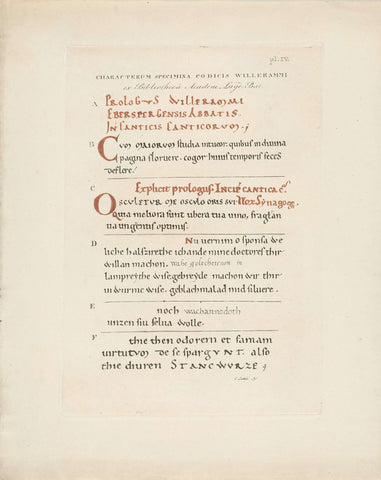 pl. IV.
CHARACTERUM SPECIMINA CODICIS WILLERAMMI
ex Bibliotheca Academ. Lugd. Bat.
A PROLOGUS WILLERAMMI
EBERSPERGENSIS ABBATIS
IN CANTICIS CANTICORUM.
B CUM MAIORUM studia intueor. quibus in diuina
pagina floruere. cogor huius temporis feces
deflere.
C Explicit prologus. INCIP CANTICA
OSCULETUR ME OSCULO ORIS SUI VOX SYNAGOGE.
Quia meliora sunt ubera tua uino, fraglan
tia ungentis optimis.
D Nu uernim o sponsa we
liche halfzirethe ich ande mine doctores thir
willan machon.
lampreythe wise. gebreyde machon wir thir
in wurme wise. geblachmalad mid siluere.
E noch wachannodoth
unzen siu selua wolle.
F thie then odorem et famam
uirtutum de se spargUNT. also
thie diuren STANCWURZE